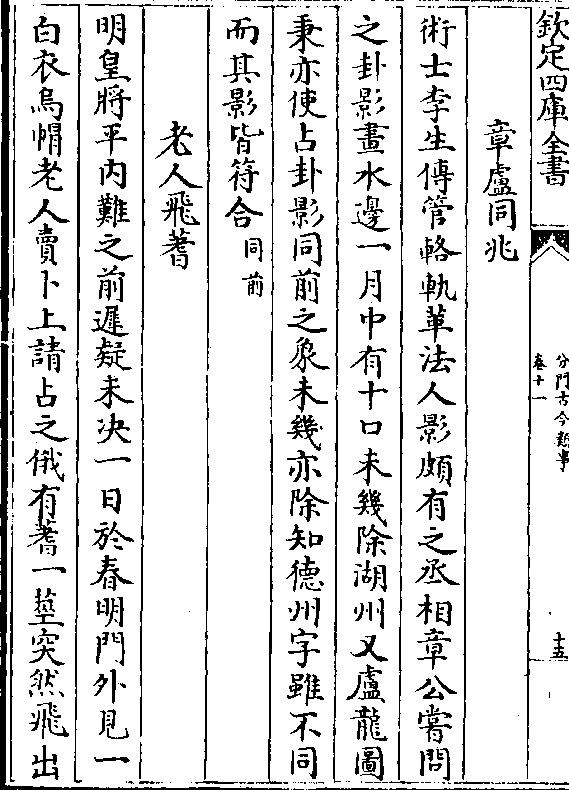 欽定四庫全書
分門古今類事
卷十一
十五
章盧同兆
術士李生傳管輅軌革法人影頗有之丞相章公嘗問
之卦影畫水邊一月中有十口未幾除湖州又盧龍圖
秉亦使占卦影同前之象未幾亦除知德州字雖不同
而其影皆符合同前
老人飛蓍
明皇將平内難之前遲疑未决一日於春明門外見一
白衣烏帽老人賣卜上請占之俄有蓍一莖突然飛出